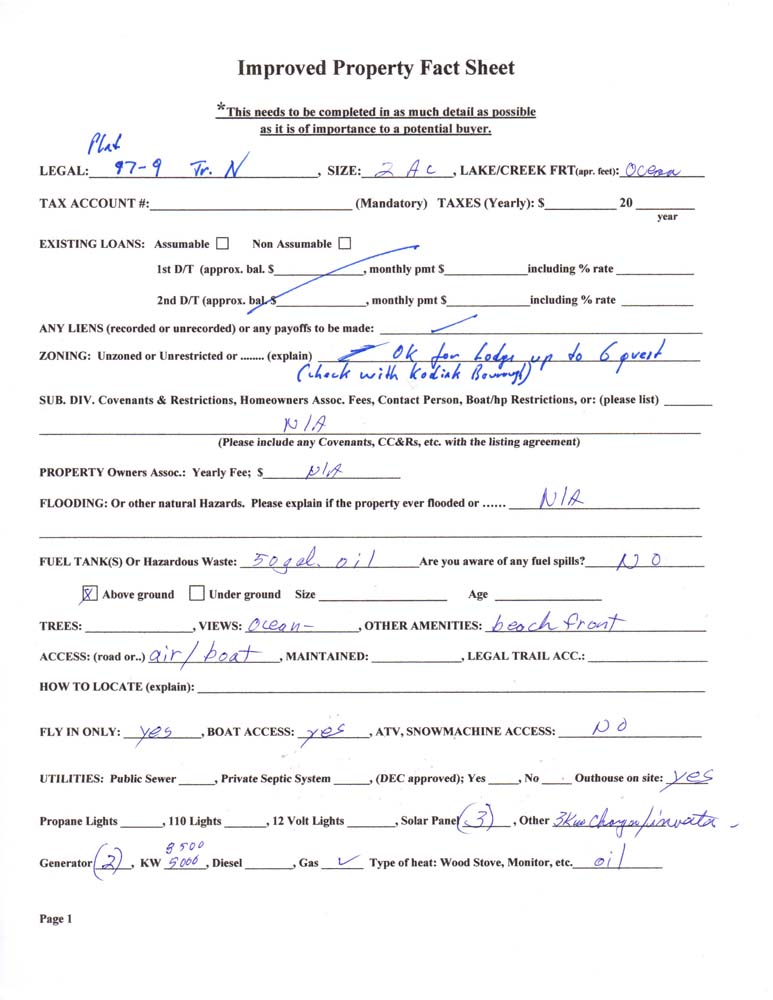 Improved Property Fact Sheet
*This needs to be completed in as much detail as possible
as it is of importance to a potential buyer.
Plat
LEGAL: 97-9 Tr. N, SIZE: 2 Ac, LAKE/CREEK FRT(apr. feet): Ocean
TAX ACCOUNT #:____ (Mandatory) TAXES (Yearly): $____ 20 ____
year
EXISTING LOANS: Assumable ☐ Non Assumable ☐
1st D/T (approx. bal. $____, monthly pmt $____ including % rate ____
2nd D/T (approx. bal. $____, monthly pmt $____ including % rate ____
ANY LIENS (recorded or unrecorded) or any payoffs to be made: ____
ZONING: Unzoned or Unrestricted or ........ (explain) OK for Lodge up to 6 guest
(check with Kodiak Borough)
SUB. DIV. Covenants & Restrictions, Homeowners Assoc. Fees, Contact Person, Boat/hp Restrictions, or: (please list) ____
N/A
(Please include any Covenants, CC&Rs, etc. with the listing agreement)
PROPERTY Owners Assoc.: Yearly Fee; $ N/A
FLOODING: Or other natural Hazards. Please explain if the property ever flooded or ...... N/A
FUEL TANK(S) Or Hazardous Waste: 50 gal. oil Are you aware of any fuel spills? NO
☒ Above ground ☐ Under ground Size ____ Age ____
TREES: ____, VIEWS: Ocean-, OTHER AMENITIES: beach front
ACCESS: (road or..) air/boat, MAINTAINED: ____, LEGAL TRAIL ACC.: ____
HOW TO LOCATE (explain): ____
FLY IN ONLY: yes, BOAT ACCESS: yes, ATV, SNOWMACHINE ACCESS: NO
UTILITIES: Public Sewer ____, Private Septic System ____, (DEC approved); Yes ____, No ____ Outhouse on site: yes
Propane Lights ____, 110 Lights ____, 12 Volt Lights ____, Solar Panel (3), Other 3Kw Charger/inverter -
8500
Generator (2), KW 5000, Diesel ____, Gas ✓ Type of heat: Wood Stove, Monitor, etc. oil
Page 1